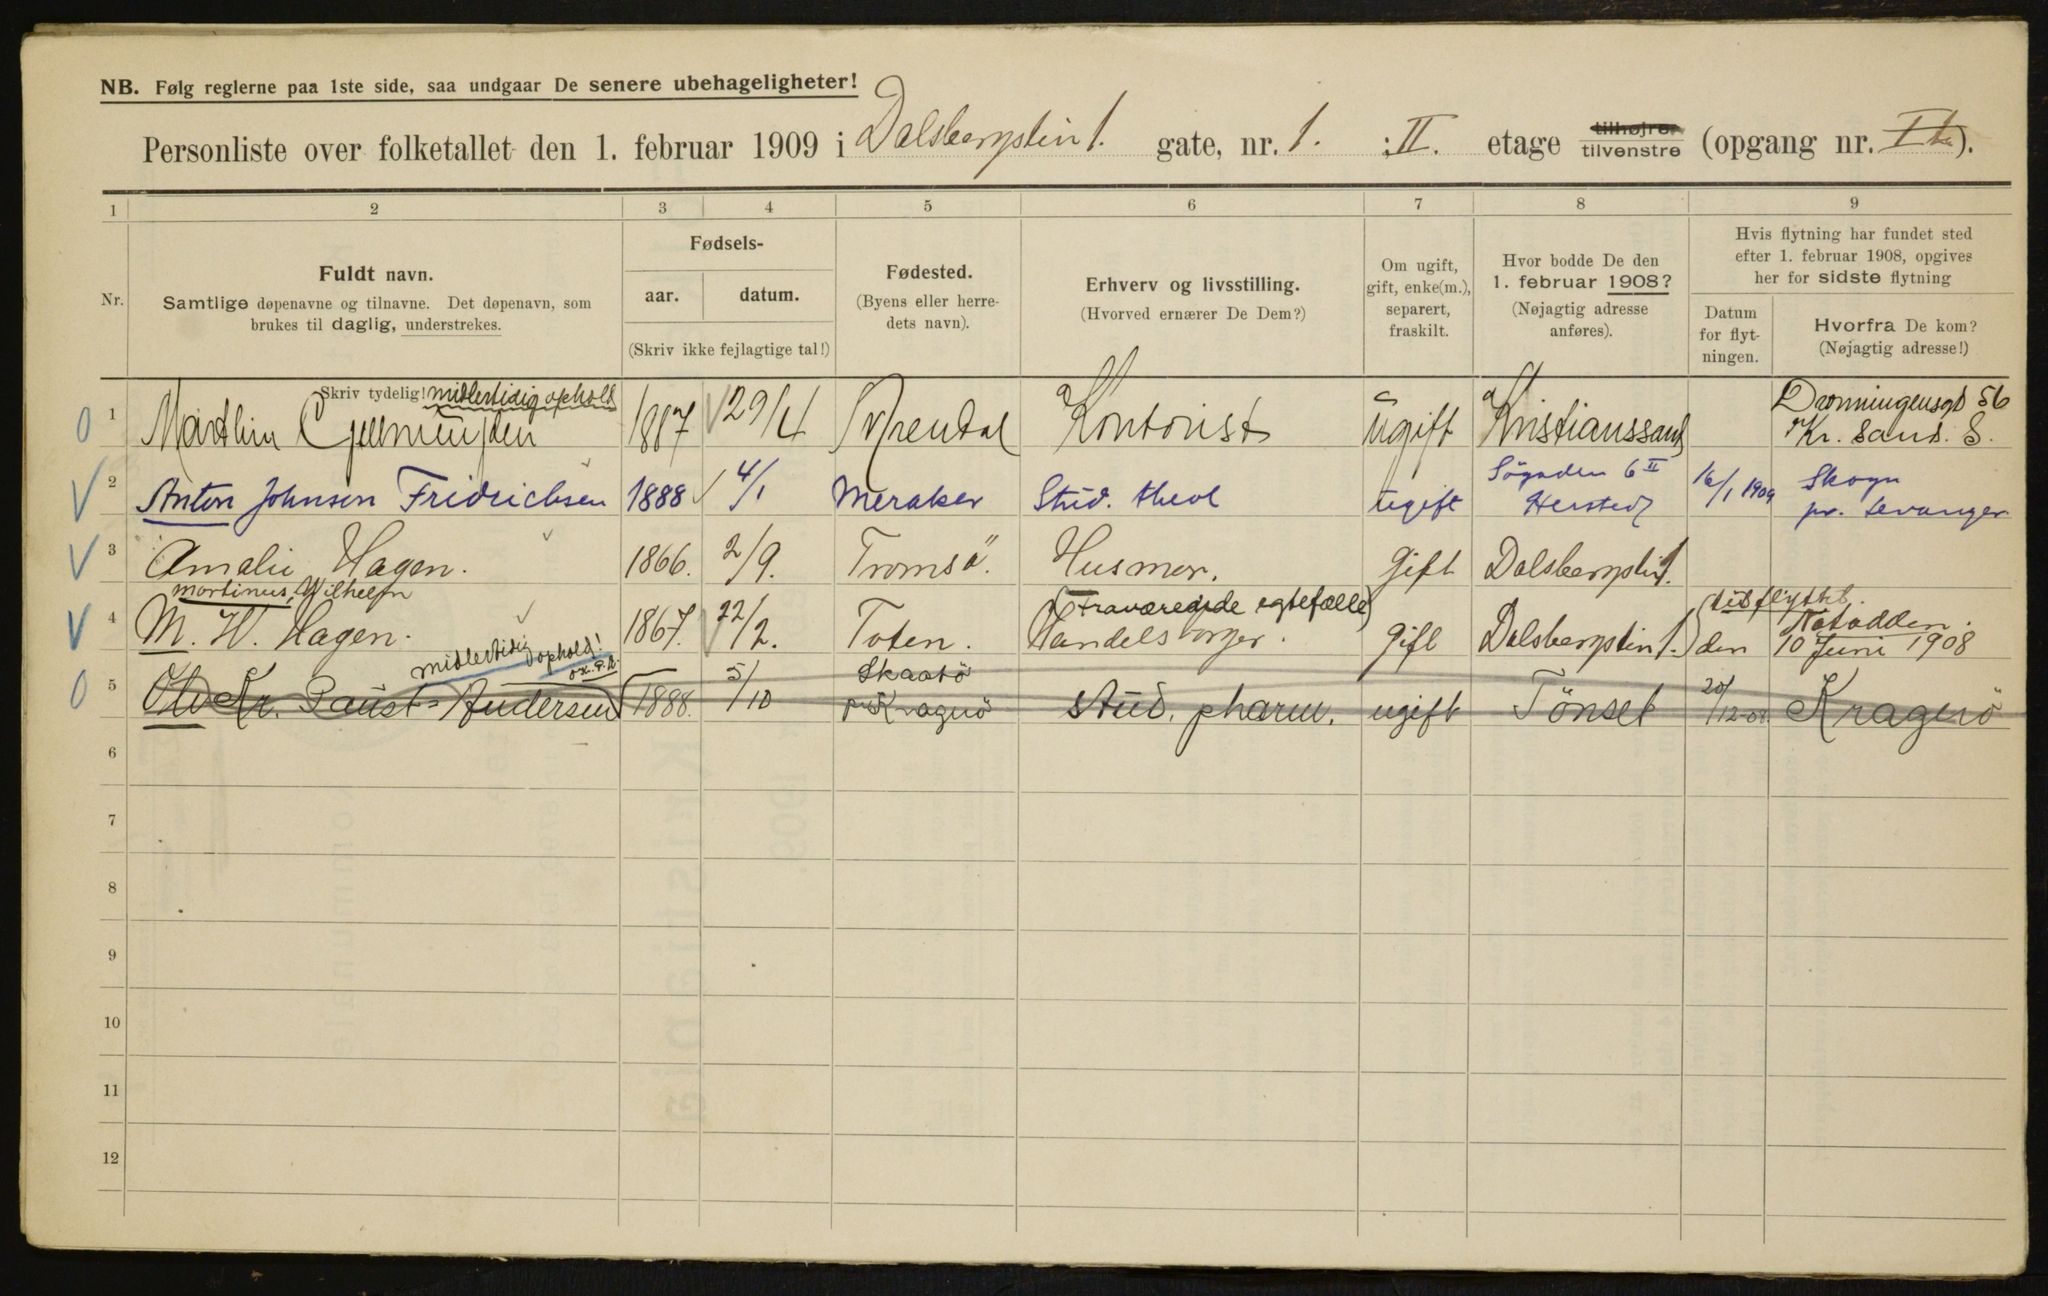 NB. Følg reglerne paa 1ste side, saa undgaar De senere ubehageligheter!
Personliste over folketallet den 1. februar 1909 i Dalsbergstien 1. gate, nr. 1. : II. etage tilhøjre tilvenstre (opgang nr. ).
1 2 3 4 5 6 7 8 9
Nr.
Fuldt navn.
Samtlige døpenavne og tilnavne. Det døpenavn, som
brukes til daglig, understrekes.
Fødsels-
aar. datum.
(Skriv ikke fejlagtige tal!)
Fødested.
(Byens eller herre-
dets navn).
Erhverv og livsstilling.
(Hvorved ernærer De Dem?)
Om ugift,
gift, enke(m.),
separert,
fraskilt.
Hvor bodde De den
1. februar 1908?
(Nøjagtig adresse
anføres).
Hvis flytning har fundet sted
efter 1. februar 1908, opgives
her for sidste flytning
Datum
for flyt-
ningen.
Hvorfra De kom?
(Nøjagtig adresse!)
Skriv tydelig! midlertidig ophold
1 1887 29/4 Kontorist ugift Kristianssand Dronningensgt 56
Kr. sand. S.
2 Anton Johnsen Fridrichsen 1888 4/1 Meraker Stud. theol ugift 6 II 16/1 1909 Skogn
pr. Levanger
3 Amalie Hagen. 1866. 2/9. Tromsö. Husmor. Gift Dalsbergstin 1.
martinus, Wilhelm
4 M. W. Hagen. 1867. 22/2. Toten. (Fraværende egtefælle)
Handelsborger. Gift Dalsbergstin 1. utflyttet
den 10 Juni 1908 Notodden.
midlertidig ophold!
5 Olv Kr. Paust-Andersen 1888. 5/10 Skaatö
pr. Kragerö stud. pharm. ugift Tönset 20/12-08. Kragerö
6
7
8
9
10
11
12